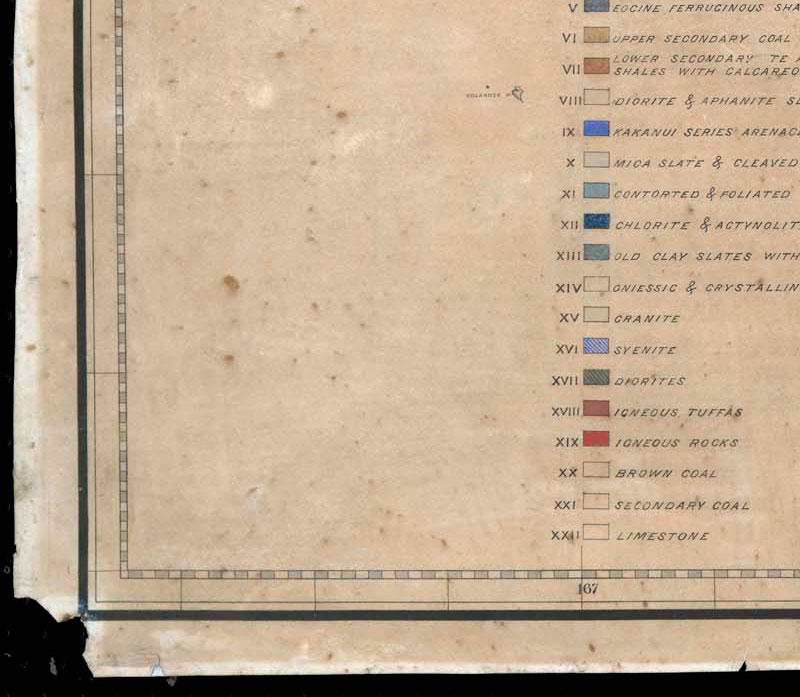 V EOCINE FERRUGINOUS SHA
VI UPPER SECONDARY COAL
VII LOWER SECONDARY TE
SHALES WITH CALCAREO
SOLANDER Iˢ
VIII DIORITE & APHANITE SL
IX KAKANUI SERIES ARENAC
X MICA SLATE & CLEAVED
XI CONTORTED & FOLIATED
XII CHLORITE & ACTYNOLIT
XIII OLD CLAY SLATES WITH
XIV GNIESSIC & CRYSTALLIN
XV GRANITE
XVI SYENITE
XVII DIORITES
XVIII IGNEOUS TUFFAS
XIX IGNEOUS ROCKS
XX BROWN COAL
XXI SECONDARY COAL
XXII LIMESTONE
167